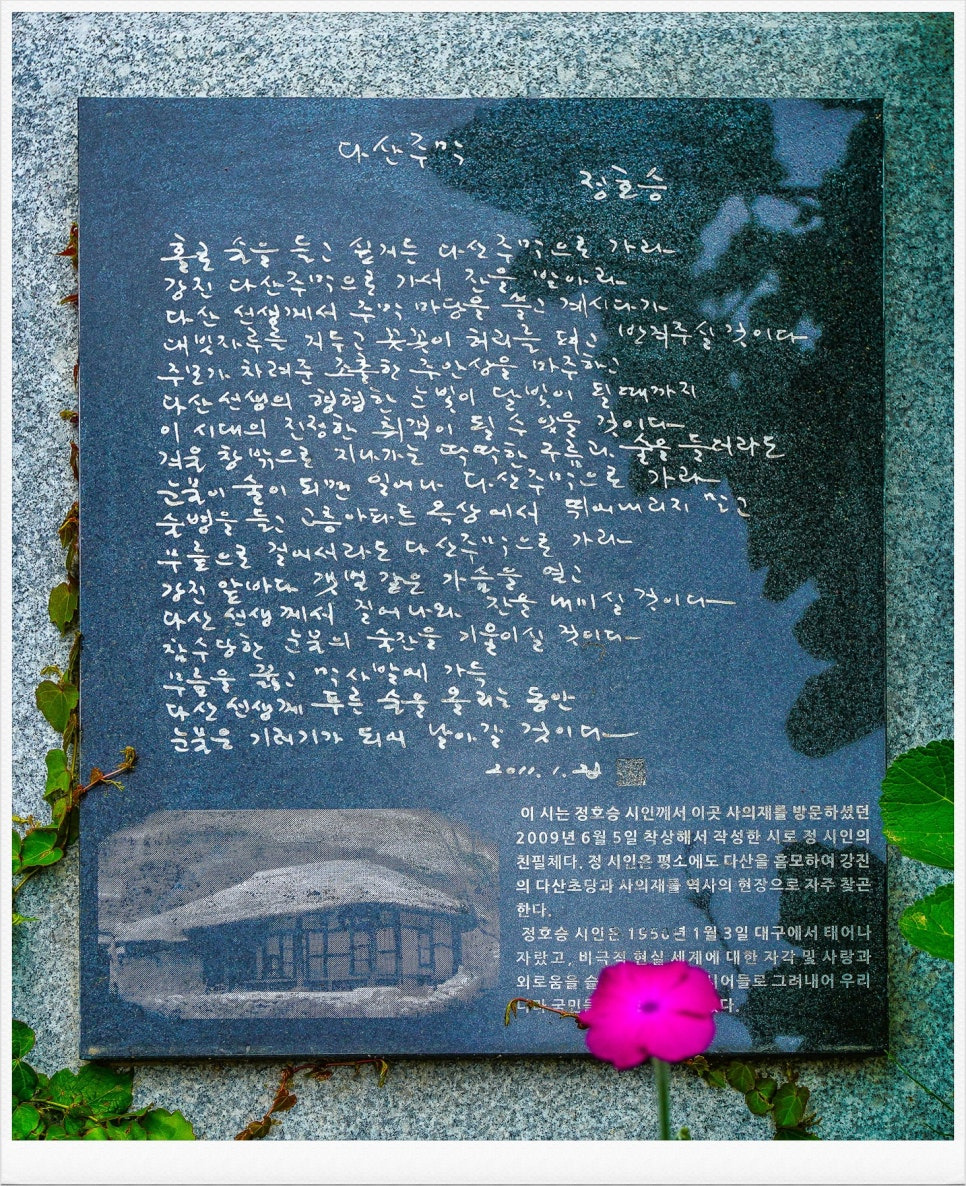 다산주막
정호승
홀로 술을 들고 싶거든 다산주막으로 가라
강진 다산주막으로 가서 잔을 받아라
다산 선생께서 주막 마당을 쓸고 계시다가
대빗자루를 거두고 꼿꼿이 허리를 펴고 반겨주실 것이다
주모가 차려준 조촐한 주안상을 마주하고
다산 선생의 형형한 눈빛이 달빛이 될 때까지
이 시대의 진정한 취객이 될 수 있을 것이다
겨울 창밖으로 지나가는 딱딱한 구름과 술을 들더라도
눈물이 술이 되면 일어나 다산주막으로 가라
술병을 들고 고층아파트 옥상에서 뛰어내리지 말고
무릎으로 걸어서라도 다산주막으로 가라
강진 앞바다 갯벌 같은 가슴을 열고
다산 선생께서 걸어나와 잔을 내미실 것이다
참수당한 눈물의 술잔을 기울이실 것이다
무릎을 꿇고 막사발에 가득
다산 선생께 푸른 술을 올리는 동안
눈물은 기러기가 되어 날아갈 것이다
2011. 1.
이 시는 정호승 시인께서 이곳 사의재를 방문하셨던
2009년 6월 5일 착상해서 작성한 시로 정 시인의
친필체다. 정 시인은 평소에도 다산을 흠모하여 강진
의 다산초당과 사의재를 역사의 현장으로 자주 찾곤
한다.
정호승 시인은 1950년 1월 3일 대구에서 태어나
자랐고, 비극적 현실 세계에 대한 자각 및 사랑과
외로움을 어들로 그려내어 우리
나라 국민 다.